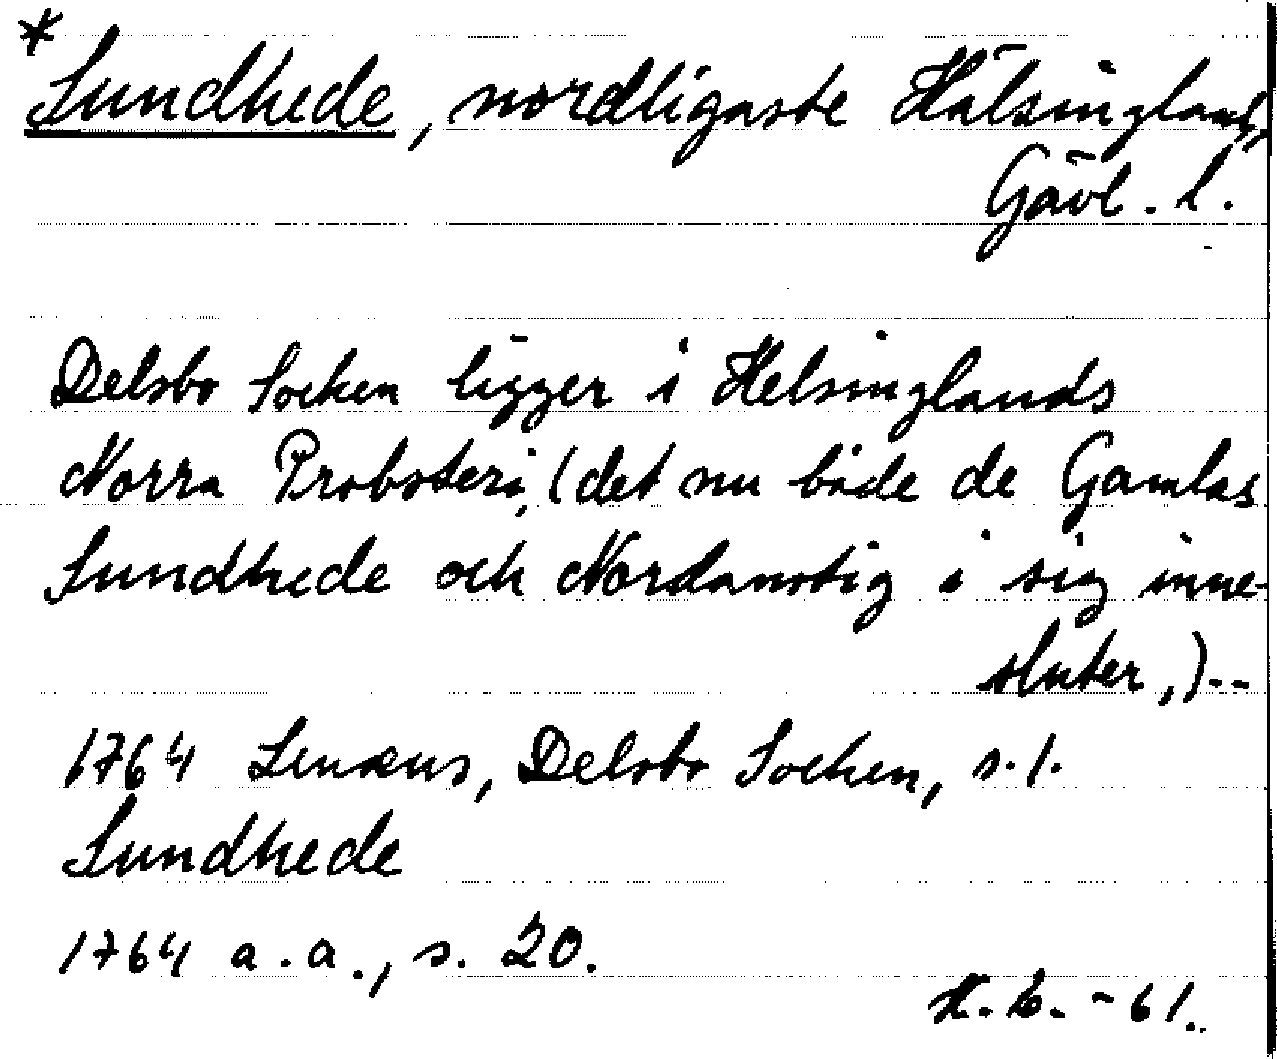 * Sundhede, nordligaste Hälsingland,
Gävl. l.
Delsbo Socken ligger i Helsinglands
Norra Probsteri, (det nu både de Gamlas
Sundhede och Nordanstig i sig inne-
sluter,) --
1764 Lenæus, Delsbo Socken, s. 1.
Sundhede
1764 a.a., s. 20.
- 61.